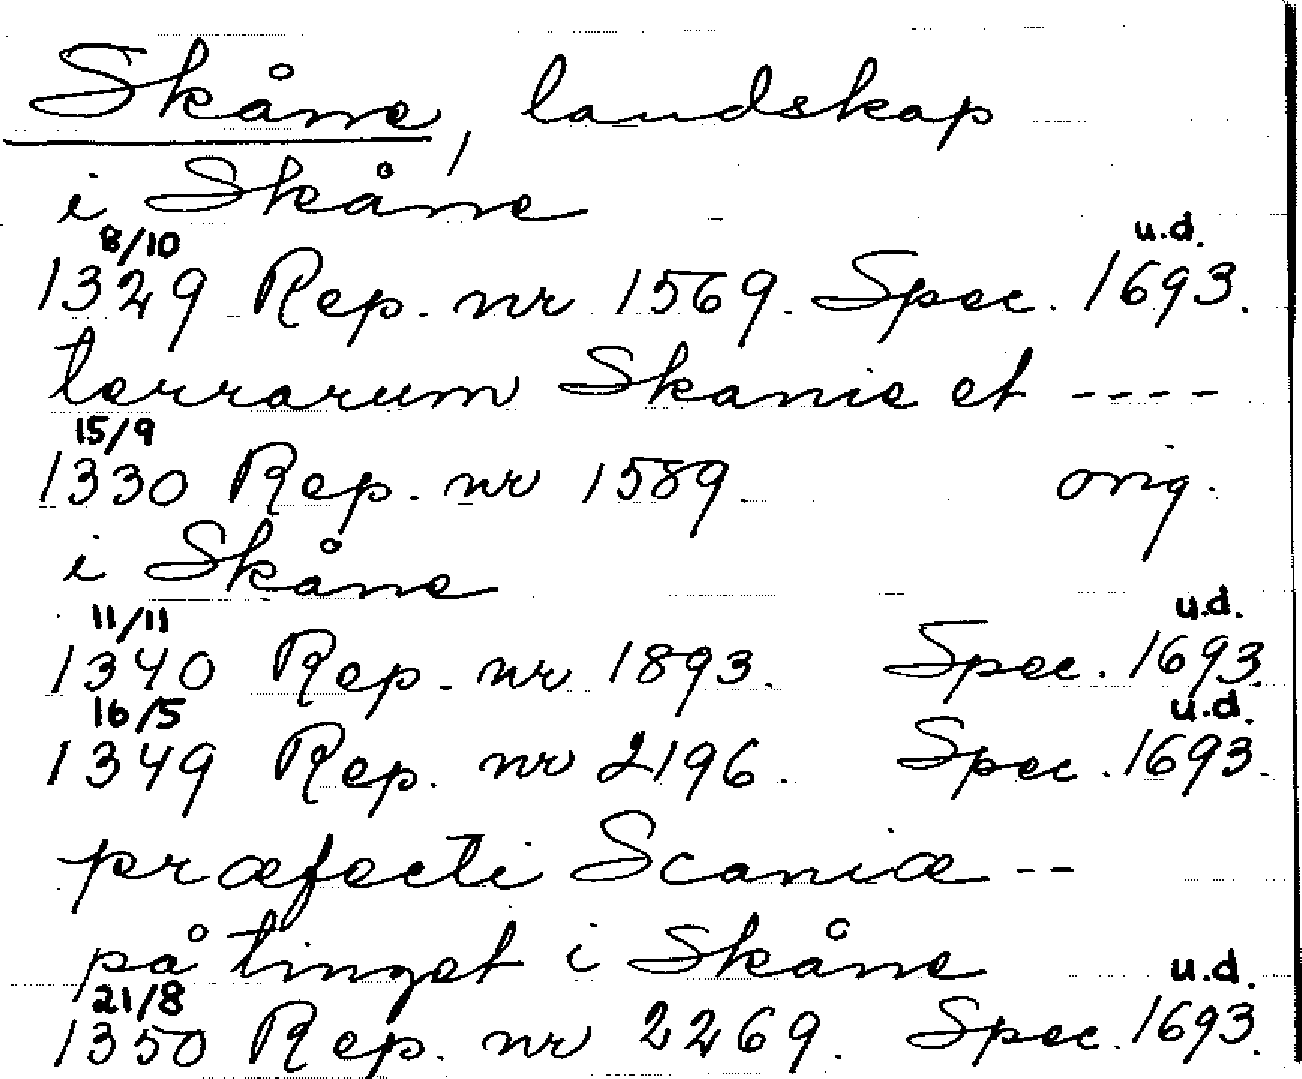 Skåne, landskap
i Skåne
8/10 u.d.
1329 Rep. nr 1569. Spec. 1693.
terrarum Skanie et ----
15/9
1330 Rep. nr 1589 orig.
i Skåne
11/11 u.d.
1340 Rep. nr 1893. Spec. 1693.
16/5 u.d.
1349 Rep. nr 2196. Spec. 1693.
præfecti Scaniæ --
på tinget i Skåne
21/8 u.d.
1350 Rep. nr 2269. Spec. 1693.